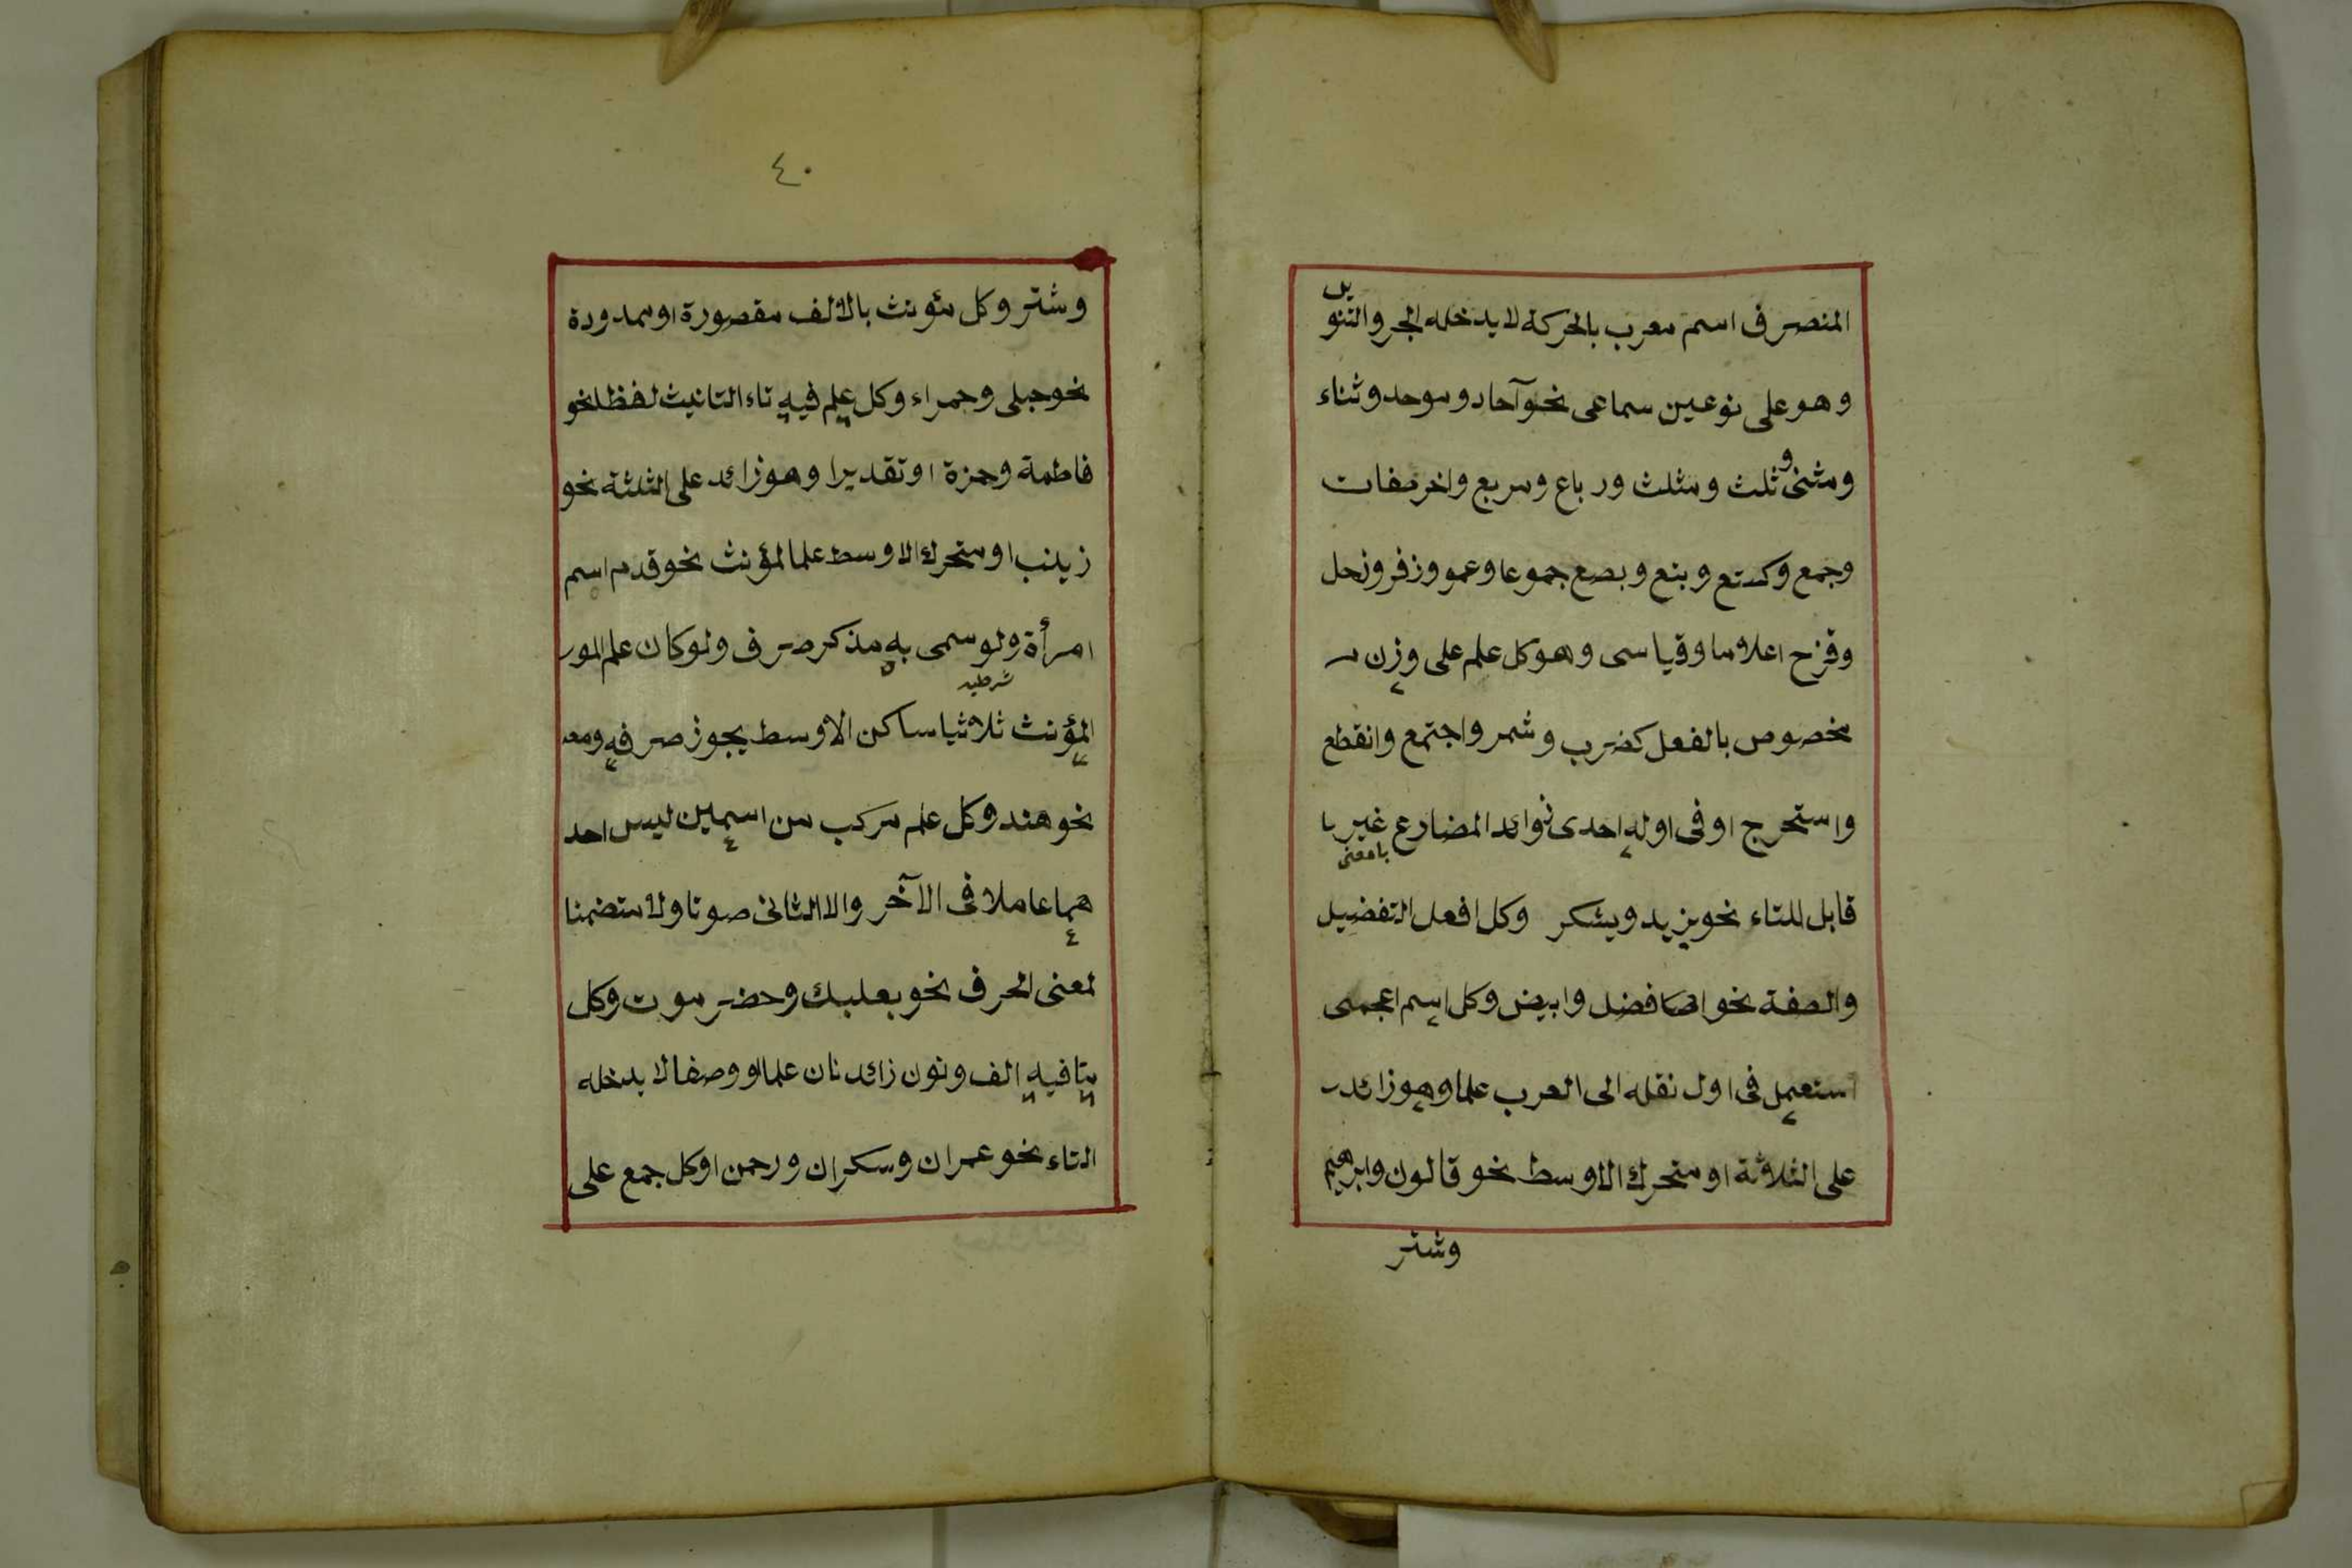 المنصرف اسم معرب بالحركة لا يدخله الجر والتنوين
وهو على نوعين سماعى نحو آحاد وموحد وثناء
ومثنى وثلث ومثلث ورباع ومربع واخر صفات
وجمع وكتع وبتع وبصع جموعا وعمر وزفر وزحل
وقزح اعلاما وقياسى وهو كل علم على وزن
مخصوص بالفعل كضرب وشمر واجتمع وانقطع
واستخرج او فى اوله احدى زوائد المضارع غير
يا معنى
قابل للتاء نحو يزيد ويشكر وكل افعل التفضيل
والصفة نحو افضل وابيض وكل اسم اعجمى
استعمل فى اول نقله الى العرب علما وهو زائد
على الثلاثة او متحرك الاوسط نحو قالون وابرهيم
وشتر
٤٠
وشتر وكل مؤنث بالالف مقصورة او ممدودة
نحو حبلى وحمراء وكل علم فيه تاء التانيث لفظا نحو
فاطمة وحمزة او تقديرا وهو زائد على الثلثة نحو
زينب او متحرك الاوسط علما لمؤنث نحو قدم اسم
امرأة ولو سمى به مذكر صرف ولو كان علم
شرطيه
المؤنث ثلاثيا ساكن الاوسط يجوز صرفه ومنعه
نحو هند وكل علم مركب من اسمين ليس احد
هما عاملا فى الآخر والا الثانى صوتا ولا متضمنا
لمعنى الحرف نحو بعلبك وحضر موت وكل
ما فيه الف ونون زائدتان علما او وصفا لا يدخله
التاء نحو عمران وسكران ورحمن او كل جمع على